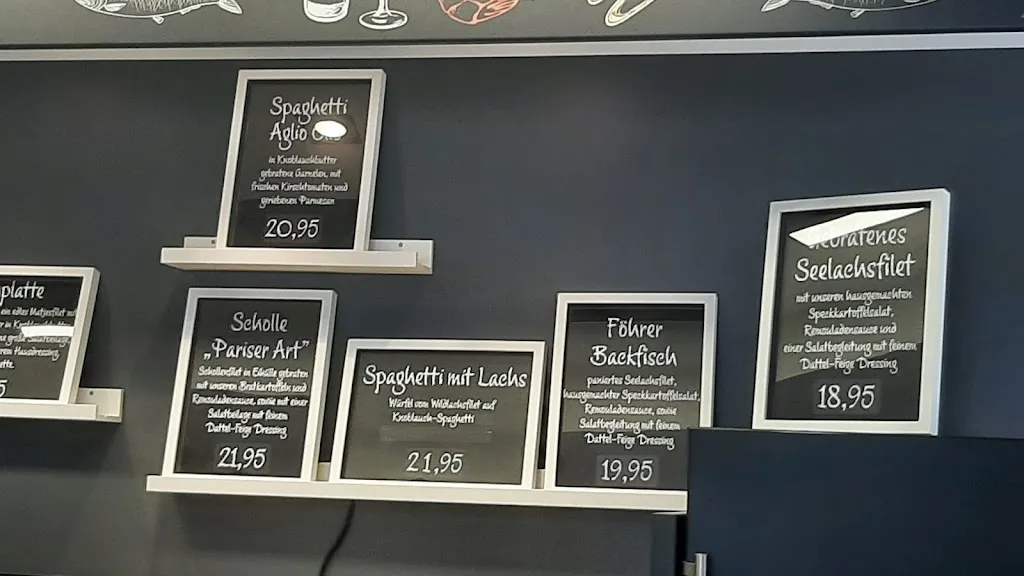 Spaghetti
Aglio
in Knoblauchbutter
gebratene Garnelen, mit
frischen Kirschtomaten und
geriebenen Parmesan
20,95
platte
ein edles Matjesfilet mit
Hausdressing,
Scholle
„Pariser Art"
Schollenfilet in Eihülle gebraten
mit unseren Bratkartoffeln und
Remouladensauce, sowie mit einer
Salatbeilage mit feinem
Dattel-Feige Dressing
21,95
Spaghetti mit Lachs
Würfel vom Wildlachsfilet auf
Knoblauch-Spaghetti
21,95
Föhrer
Backfisch
paniertes Seelachsfilet,
hausgemachter Speckkartoffelsalat,
Remouladensauce, sowie
Salatbegleitung mit feinem
Dattel-Feige Dressing
19,95
Gebratenes
Seelachsfilet
mit unseren hausgemachten
Speckkartoffelsalat,
Remouladensauce und
einer Salatbegleitung mit feinem
Dattel-Feige Dressing
18,95